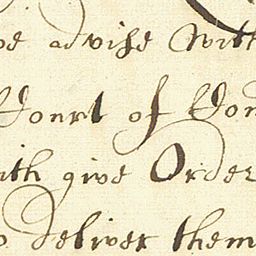 advise with
Court of
give Order
deliver them